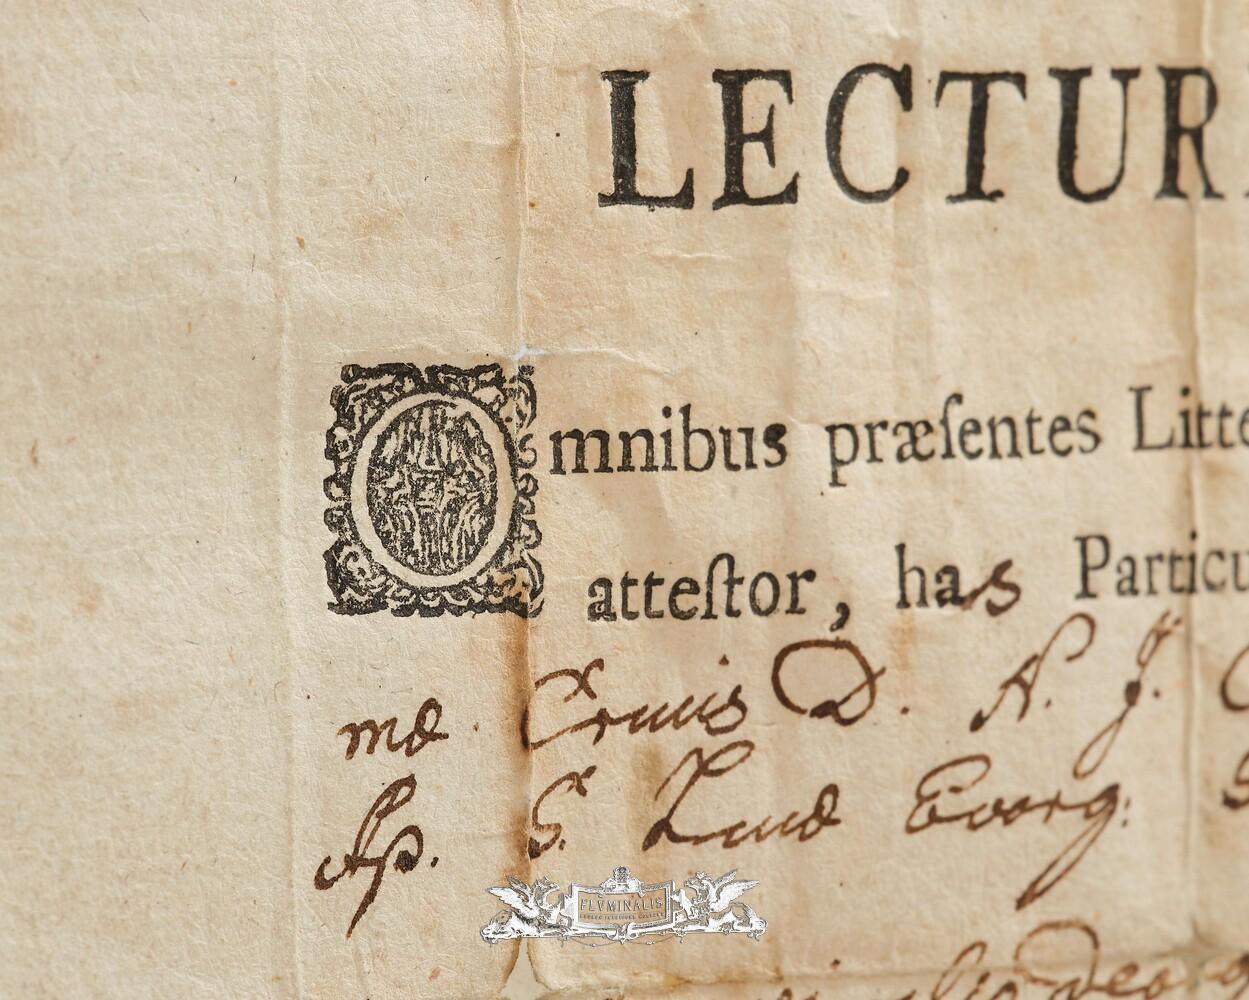 LECTUR
Omnibus præſentes Litte
atteſtor, has Particu
Crucis D. N. J.
Ap. S. Lucæ Evang:
FLVMINALIS